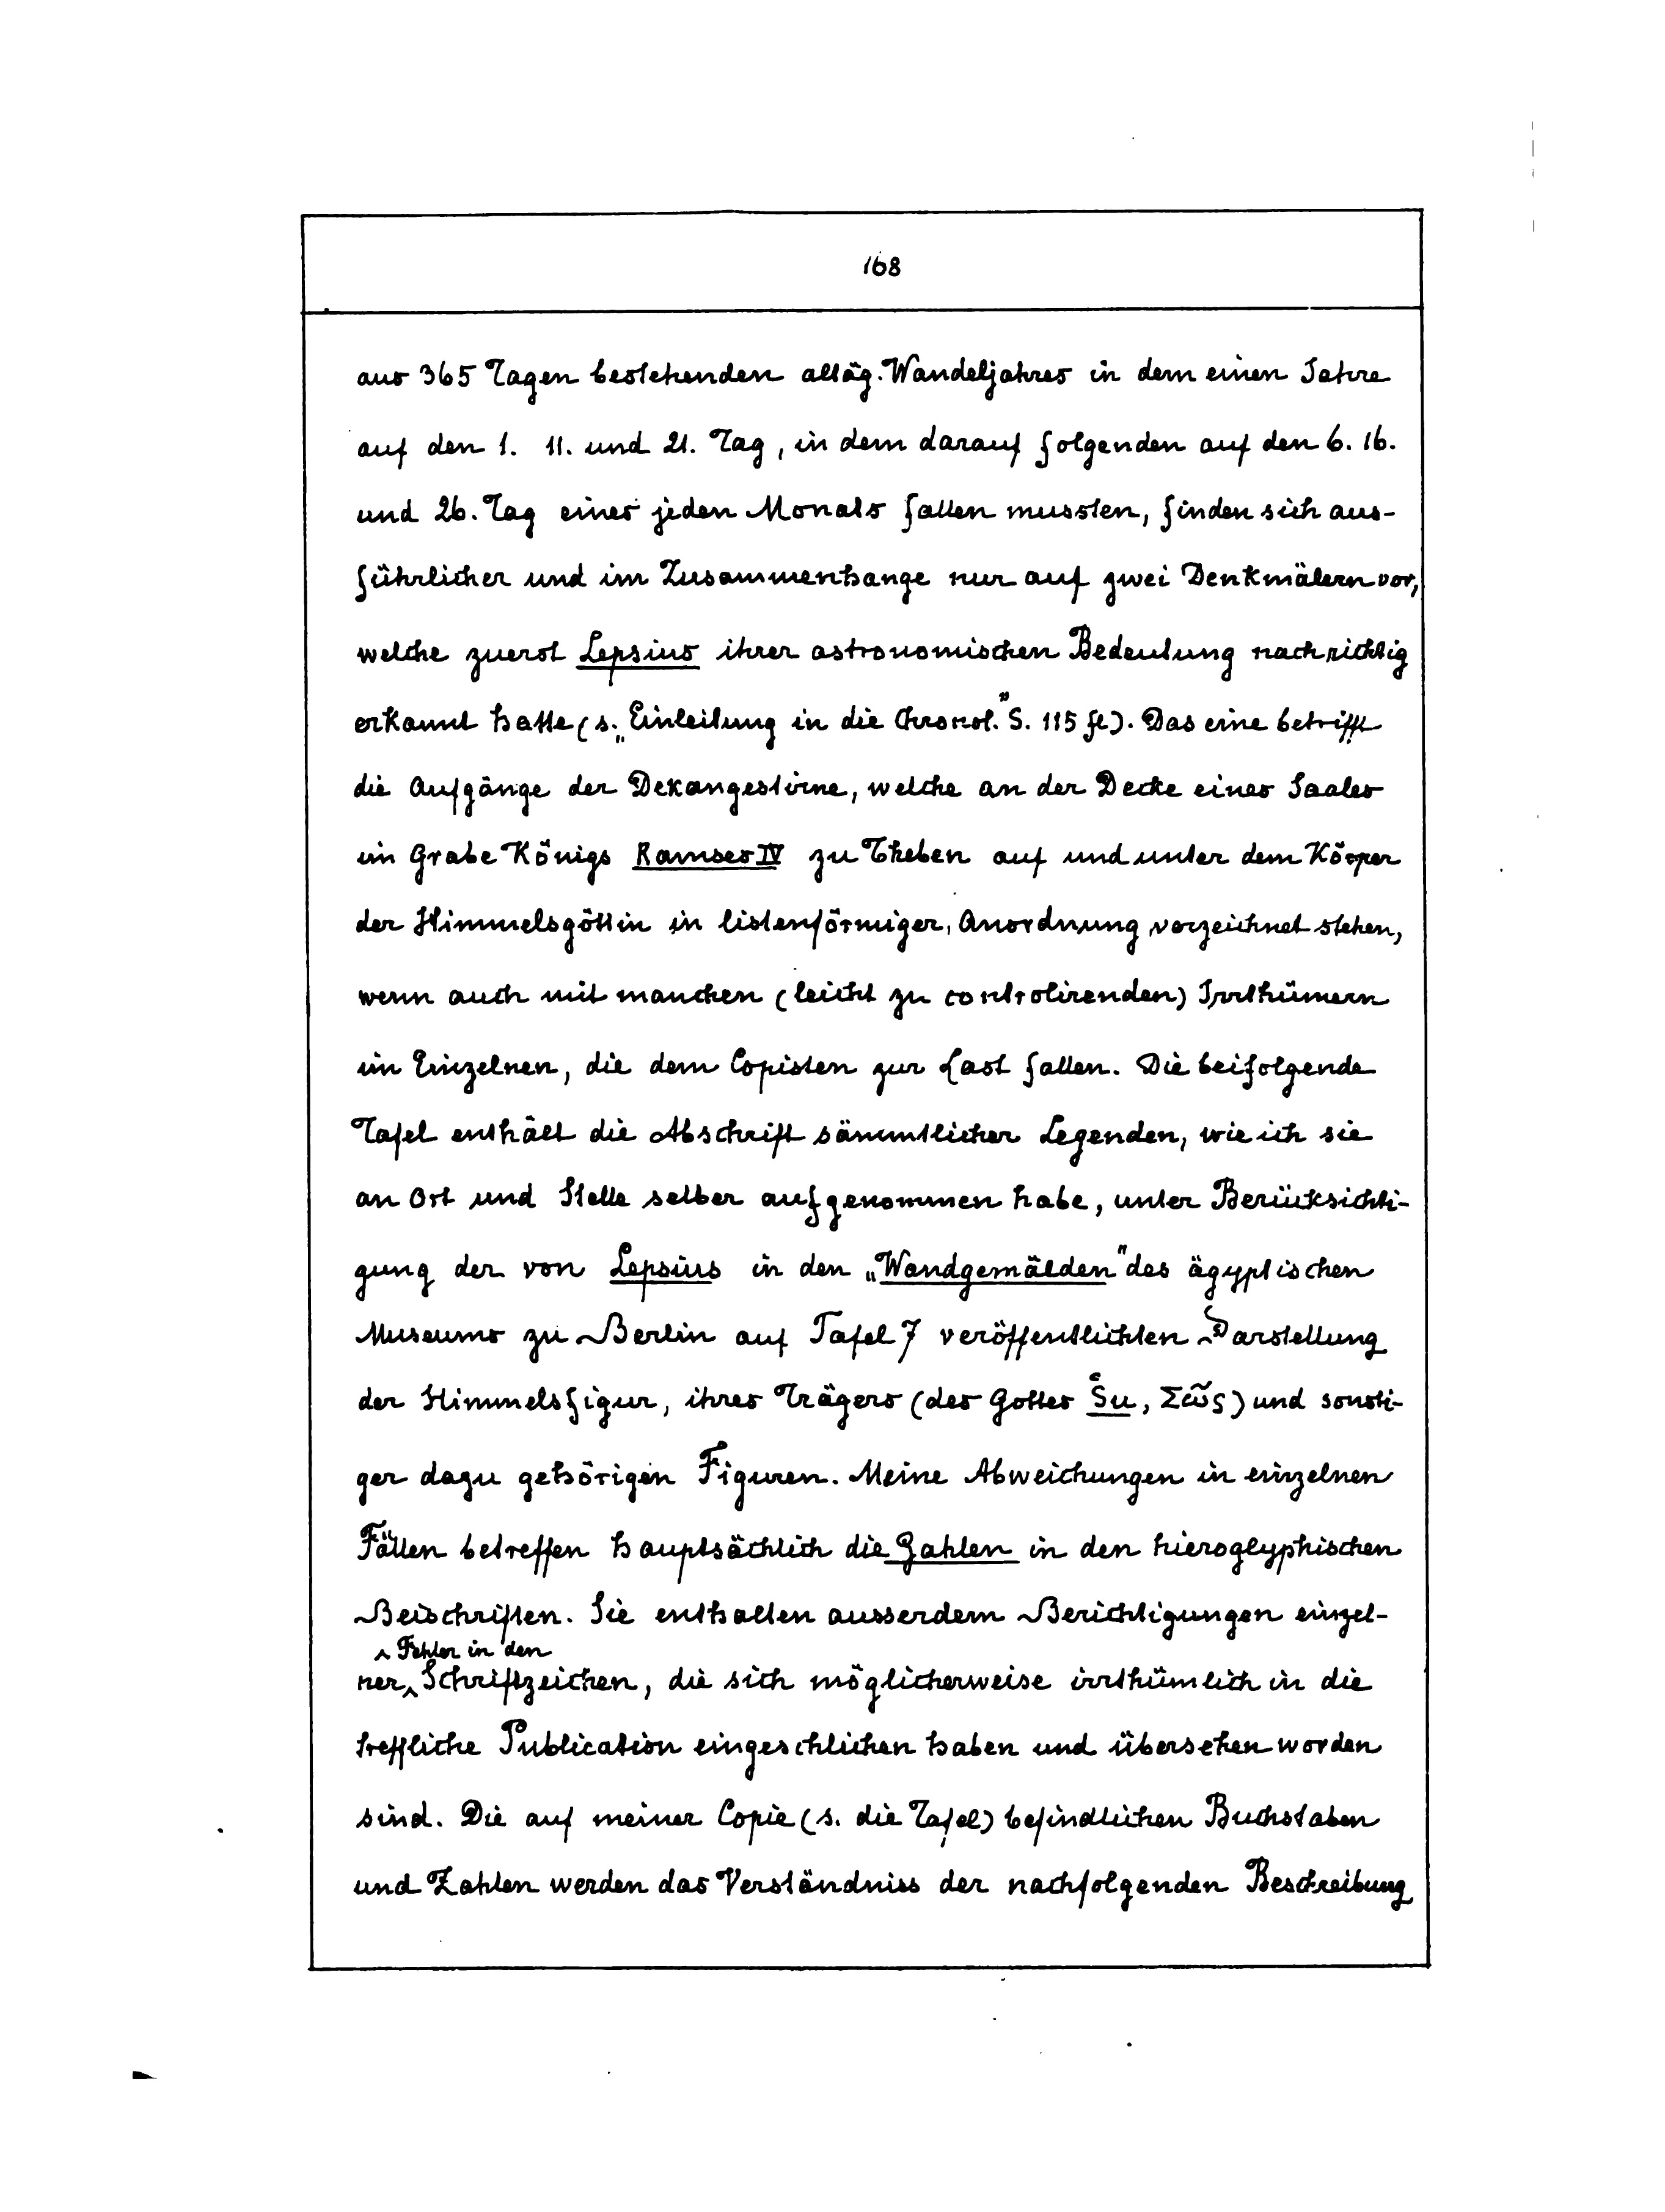 168
aus 365 Tagen bestehenden altäg. Wandeljahres in dem einen Jahre
auf den 1. 11. und 21. Tag, in dem darauf folgenden auf den 6. 16.
und 26. Tag eines jeden Monats fallen mussten, finden sich aus-
führlicher und im Zusammenhange nur auf zwei Denkmälern vor,
welche zuerst Lepsius ihrer astronomischen Bedeutung nach richtig
erkannt hatte (s. „Einleitung in die Chronol." S. 115 fl). Das eine betrifft
die Aufgänge der Dekangestirne, welche an der Decke eines Saales
im Grabe Königs Ramses IV zu Theben auf und unter dem Körper
der Himmelsgöttin in listenförmiger Anordnung verzeichnet stehen,
wenn auch mit manchen (leicht zu controlirenden) Irrthümern
im Einzelnen, die dem Copisten zur Last fallen. Die beifolgende
Tafel enthält die Abschrift sämmtlicher Legenden, wie ich sie
an Ort und Stelle selber aufgenommen habe, unter Berücksichti-
gung der von Lepsius in den „Wandgemälden" des ägyptischen
Museums zu Berlin auf Tafel 7 veröffentlichten Darstellung
der Himmelsfigur, ihres Trägers (des Gottes Šu, Σῶς) und sonsti-
ger dazu gehörigen Figuren. Meine Abweichungen in einzelnen
Fällen betreffen hauptsächlich die Zahlen in den hieroglyphischen
Beischriften. Sie enthalten ausserdem Berichtigungen einzel-
^ Fehler in den
ner ^ Schriftzeichen, die sich möglicherweise irrthümlich in die
treffliche Publication eingeschlichen haben und übersehen worden
sind. Die auf meiner Copie (s. die Tafel) befindlichen Buchstaben
und Zahlen werden das Verständniss der nachfolgenden Beschreibung